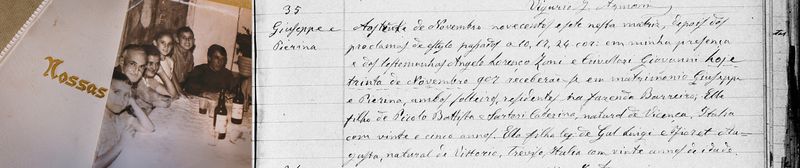 Nossas
35
Vigario L. Azmom
Giuseppe e
Pierina
Aos trinta de Novembro novecentos e sete nesta matriz, depois dos
proclamas de estylo passados a 10, 17, 24 cor: em minha presença
e dos testemunhas Angelo Lorenzo Zani e Cavallari Giovanni hoje
trinta de Novembro 907 receberão-se em matrimonio Giuseppe
e Pierina, ambos solteiros, residentes na fazenda Barreiro; Elle
filho de Picolo Battista e Sartori Catterina, natural de Vicenza, Italia
com vinte e cinco annos. Ella filha leg de Gal Luigi e Piaret Au-
gusta, natural de Vittorio, Treviso, Italia com vinte annos de idade